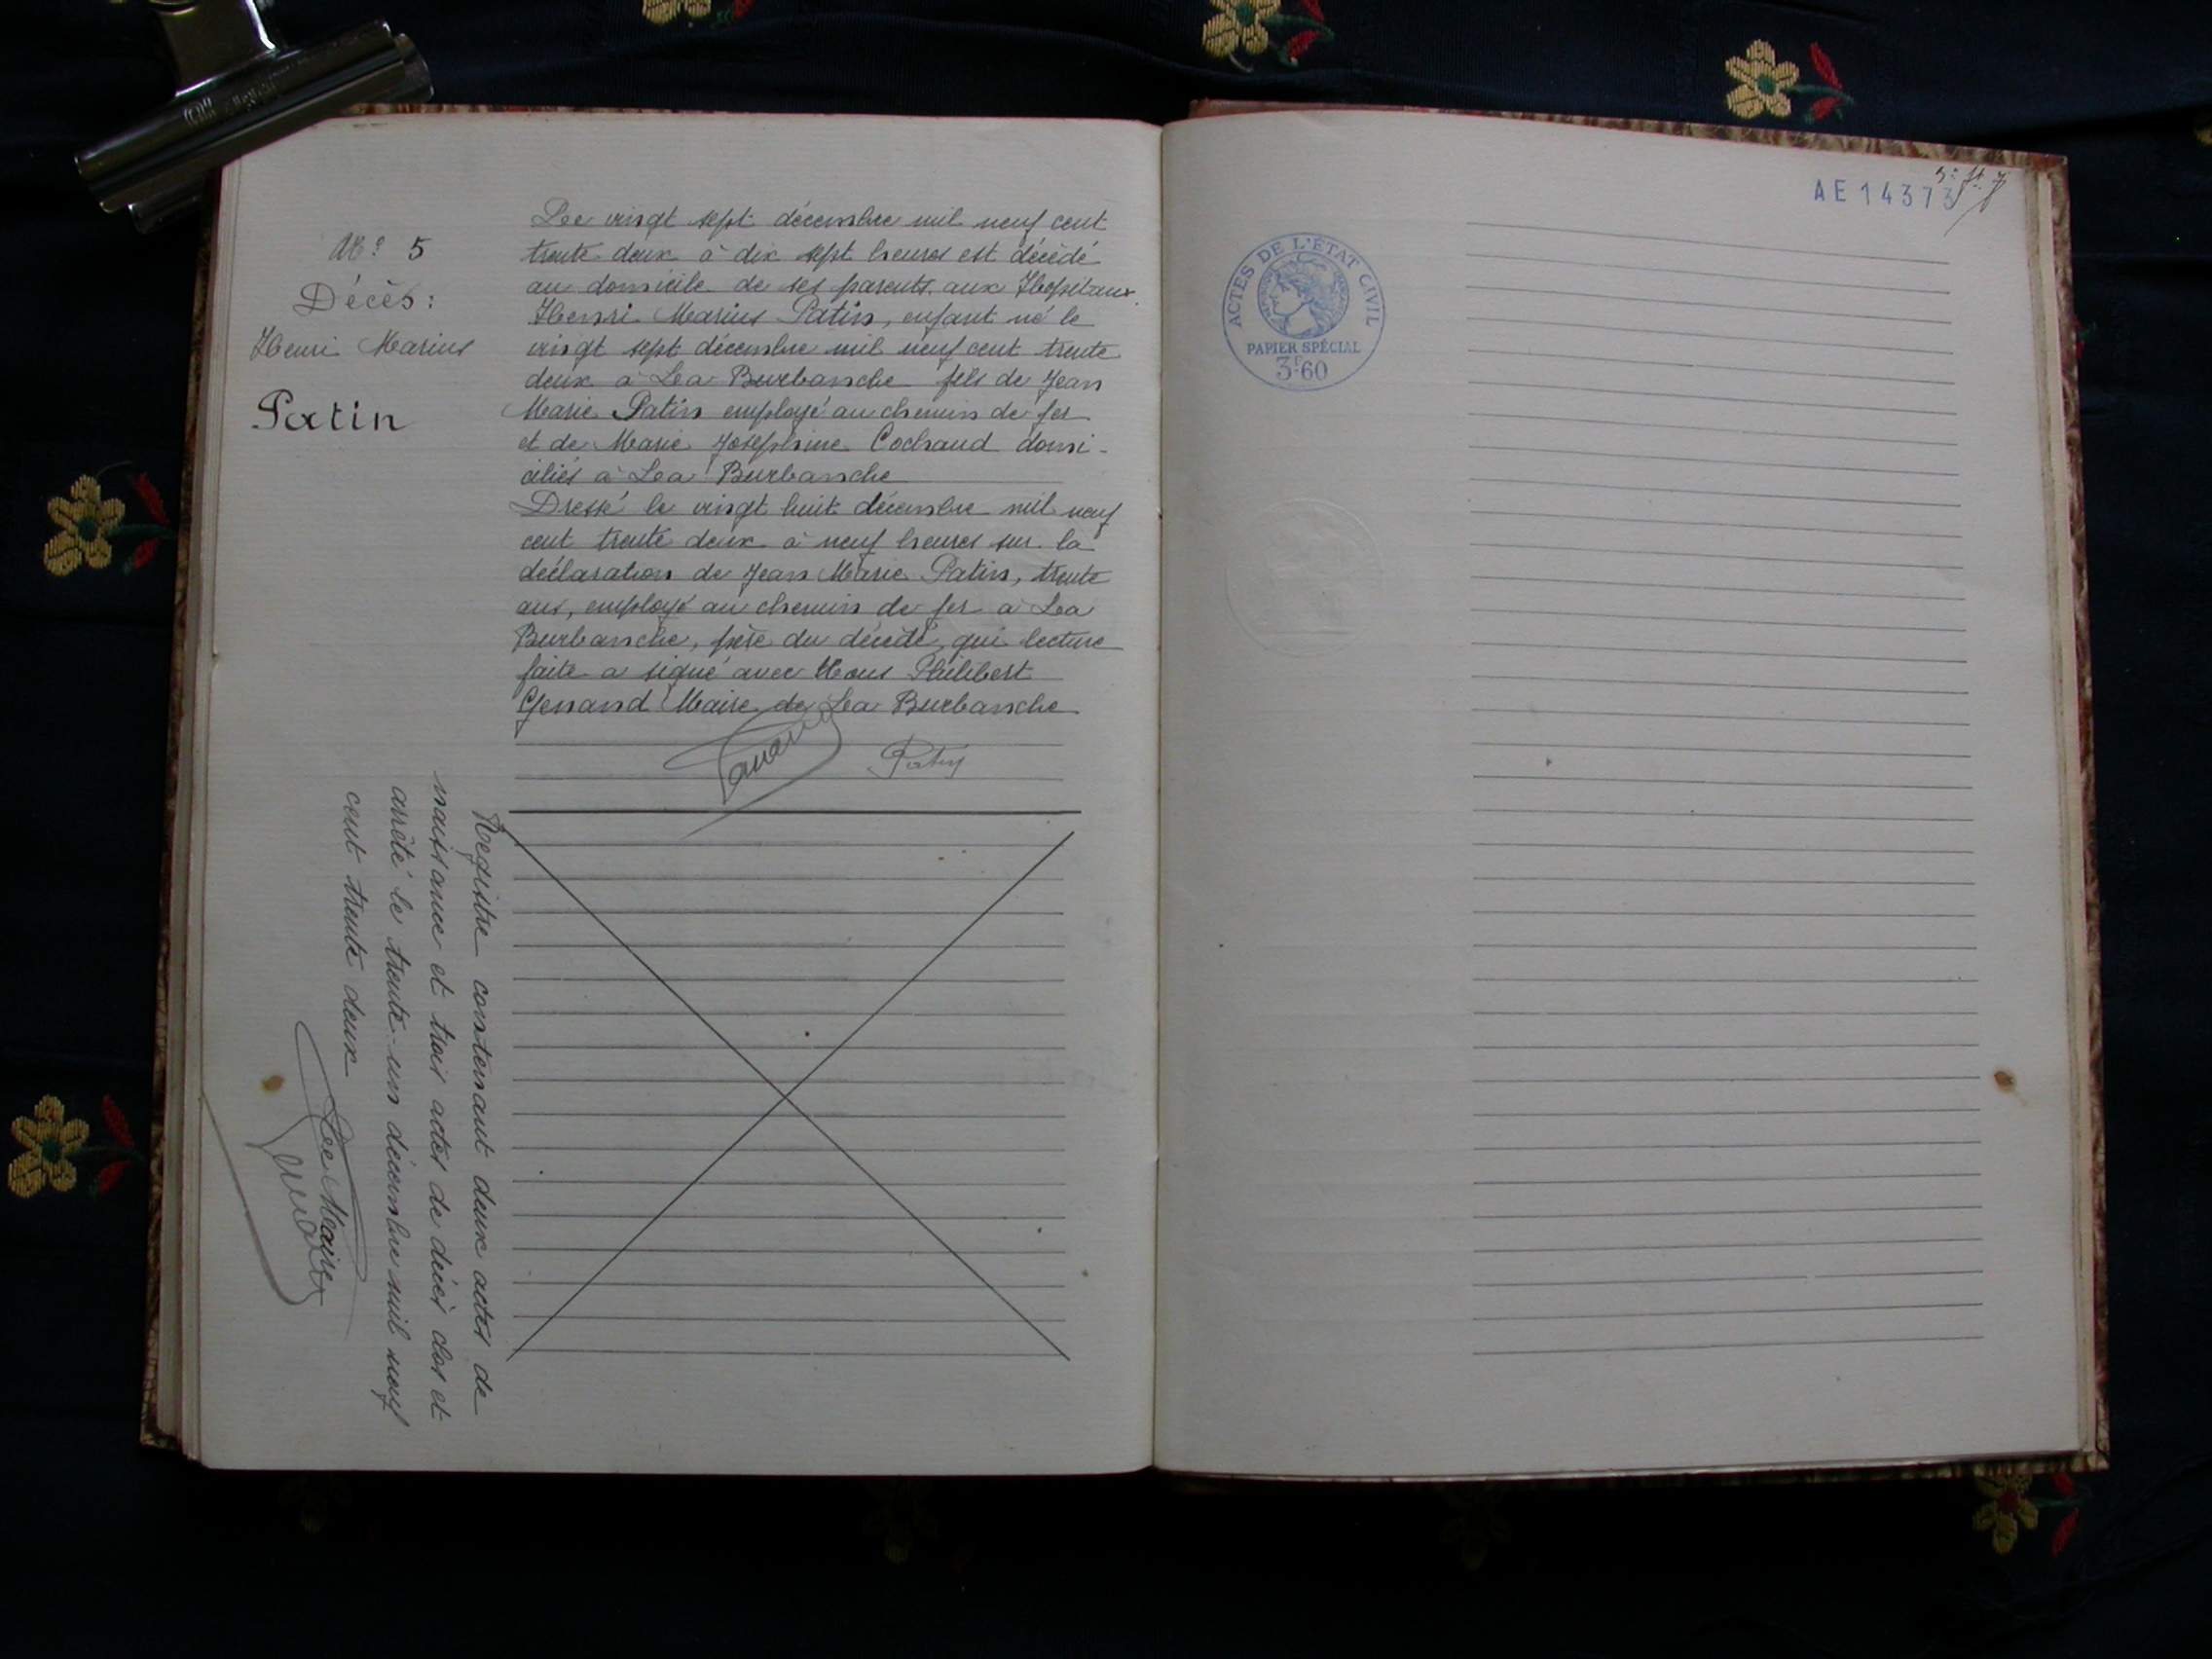 N° 5
Décès:
Henri Marius
Patin
Le vingt sept décembre mil neuf cent
trente deux à dix sept heures est décédé
au domicile de ses parents aux Hopitaux.
Henri Marius Patin, enfant né le
vingt sept décembre mil neuf cent trente
deux à La Burbanche fils de Jean
Marie Patin employé au chemin de fer
et de Marie Joséphine Cochaud domi-
ciliés à La Burbanche
Dressé le vingt huit décembre mil neuf
cent trente deux à neuf heures sur la
déclaration de Jean Marie Patin, trente
ans, employé au chemin de fer à La
Burbanche, père du décédé, qui lecture
faite a signé avec Nous Philibert
Genand Maire de La Burbanche
Patin
Registre contenant deux actes de
naissance et trois actes de décès clos et
arrêté le trente-un décembre mil neuf
cent trente deux
Le Maire
AE 14373
ACTES DE L'ÉTAT CIVIL
PAPIER SPÉCIAL
3F.60